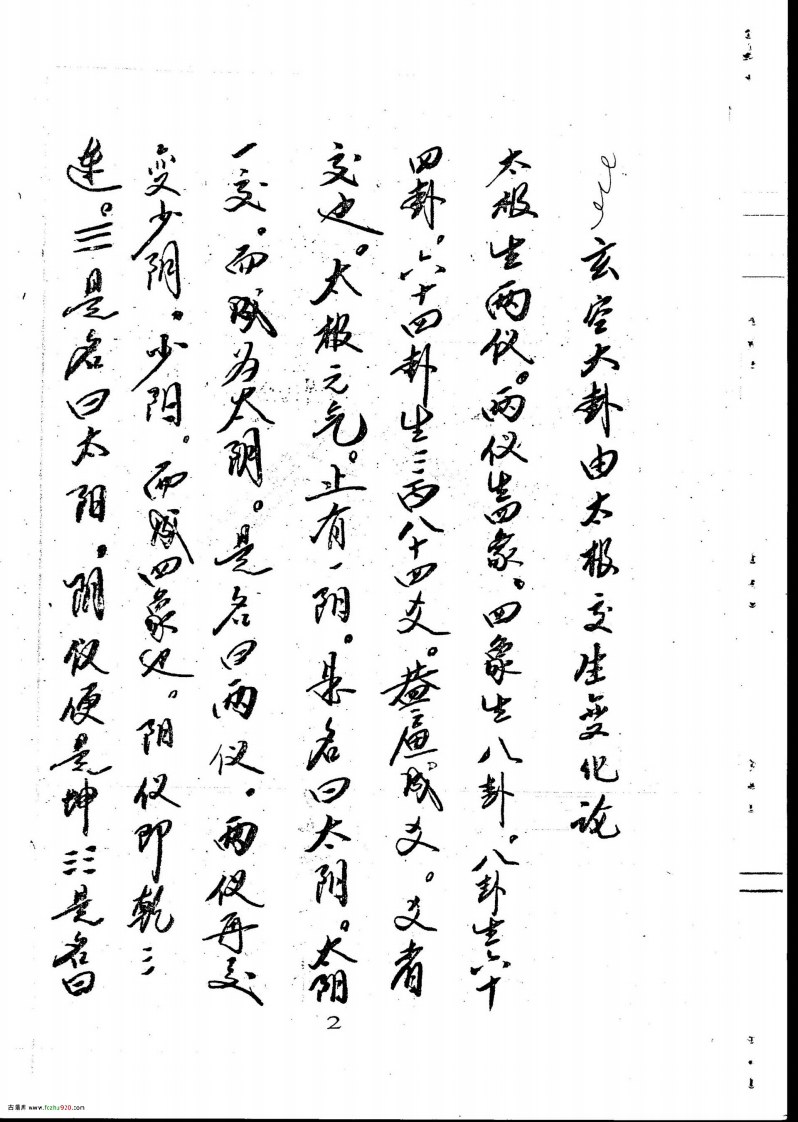 玄空大卦由太极交生变化论
太极生两仪。两仪生四象。四象生八卦。八卦生六十
四卦。六十四卦生三百八十四爻。成爻。爻者
交也。太极元气。上有一阴。是名曰太阴。太阳
一交。而成为太阴。是名曰两仪。两仪再交
变少阴。少阳。而成四象也。阳仪即乾三
连。☰是名曰太阳。阴仪便是坤☷是名曰
2
www.fczhu920.com